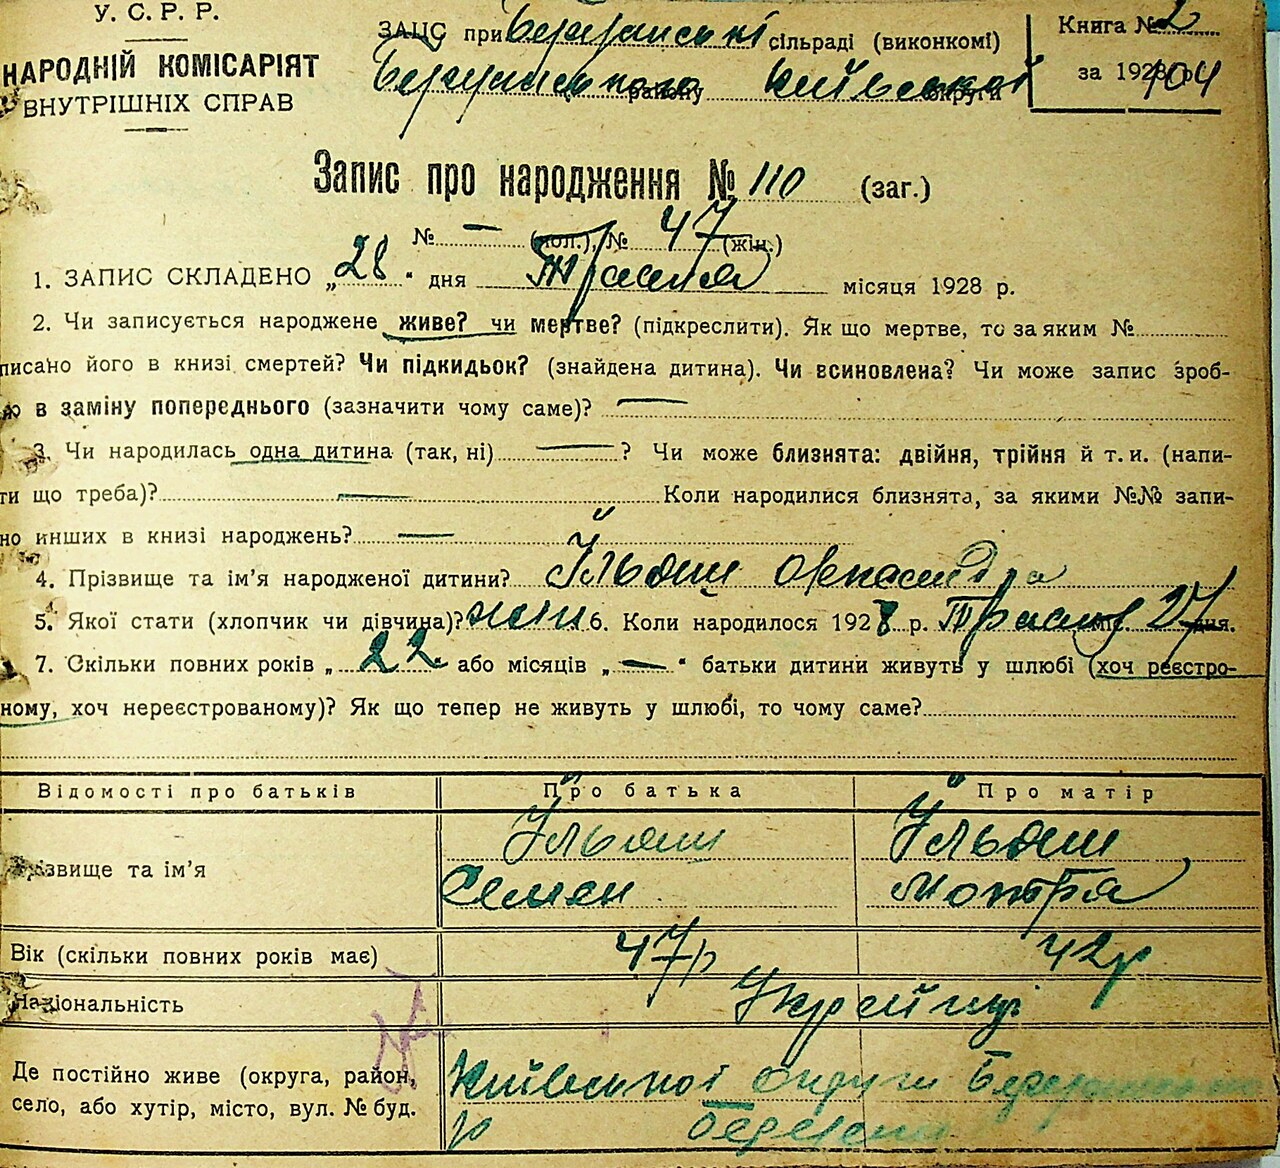 У. С. Р. Р.
НАРОДНІЙ КОМІСАРІЯТ
ВНУТРІШНІХ СПРАВ
ЗАЦС при сільраді (виконкомі)
району Київської округи
Книга № 2
за 1928 р. 104
Запис про народження № 110 (заг.)
№ — (пол.), № 47 (жін.)
1. ЗАПИС СКЛАДЕНО „28“ дня Травня місяця 1928 р.
2. Чи записується народжене живе? чи мертве? (підкреслити). Як що мертве, то за яким №
писано його в книзі смертей? Чи підкидьок? (знайдена дитина). Чи всиновлена? Чи може запис зроб-
о в заміну попереднього (зазначити чому саме)? —
3. Чи народилась одна дитина (так, ні) — ? Чи може близнята: двійня, трійня й т. и. (напи-
ти що треба)? — Коли народилися близнята, за якими №№ запи-
но инших в книзі народжень? —
4. Прізвище та ім’я народженої дитини?
5. Якої статі (хлопчик чи дівчина)? жін 6. Коли народилося 1928 р. Травня м. 27 дня.
7. Скільки повних років „ 22 або місяців „ — “ батьки дитини живуть у шлюбі (хоч реєстро-
ному, хоч нереєстрованому)? Як що тепер не живуть у шлюбі, то чому саме?
Відомості про батьків Про батька Про матір
Прізвище та ім’я
Семен Мотря
Вік (скільки повних років має) 47р 42р
Національність Українці
Де постійно живе (округа, район, Київської округи
село, або хутір, місто, вул. № буд. р